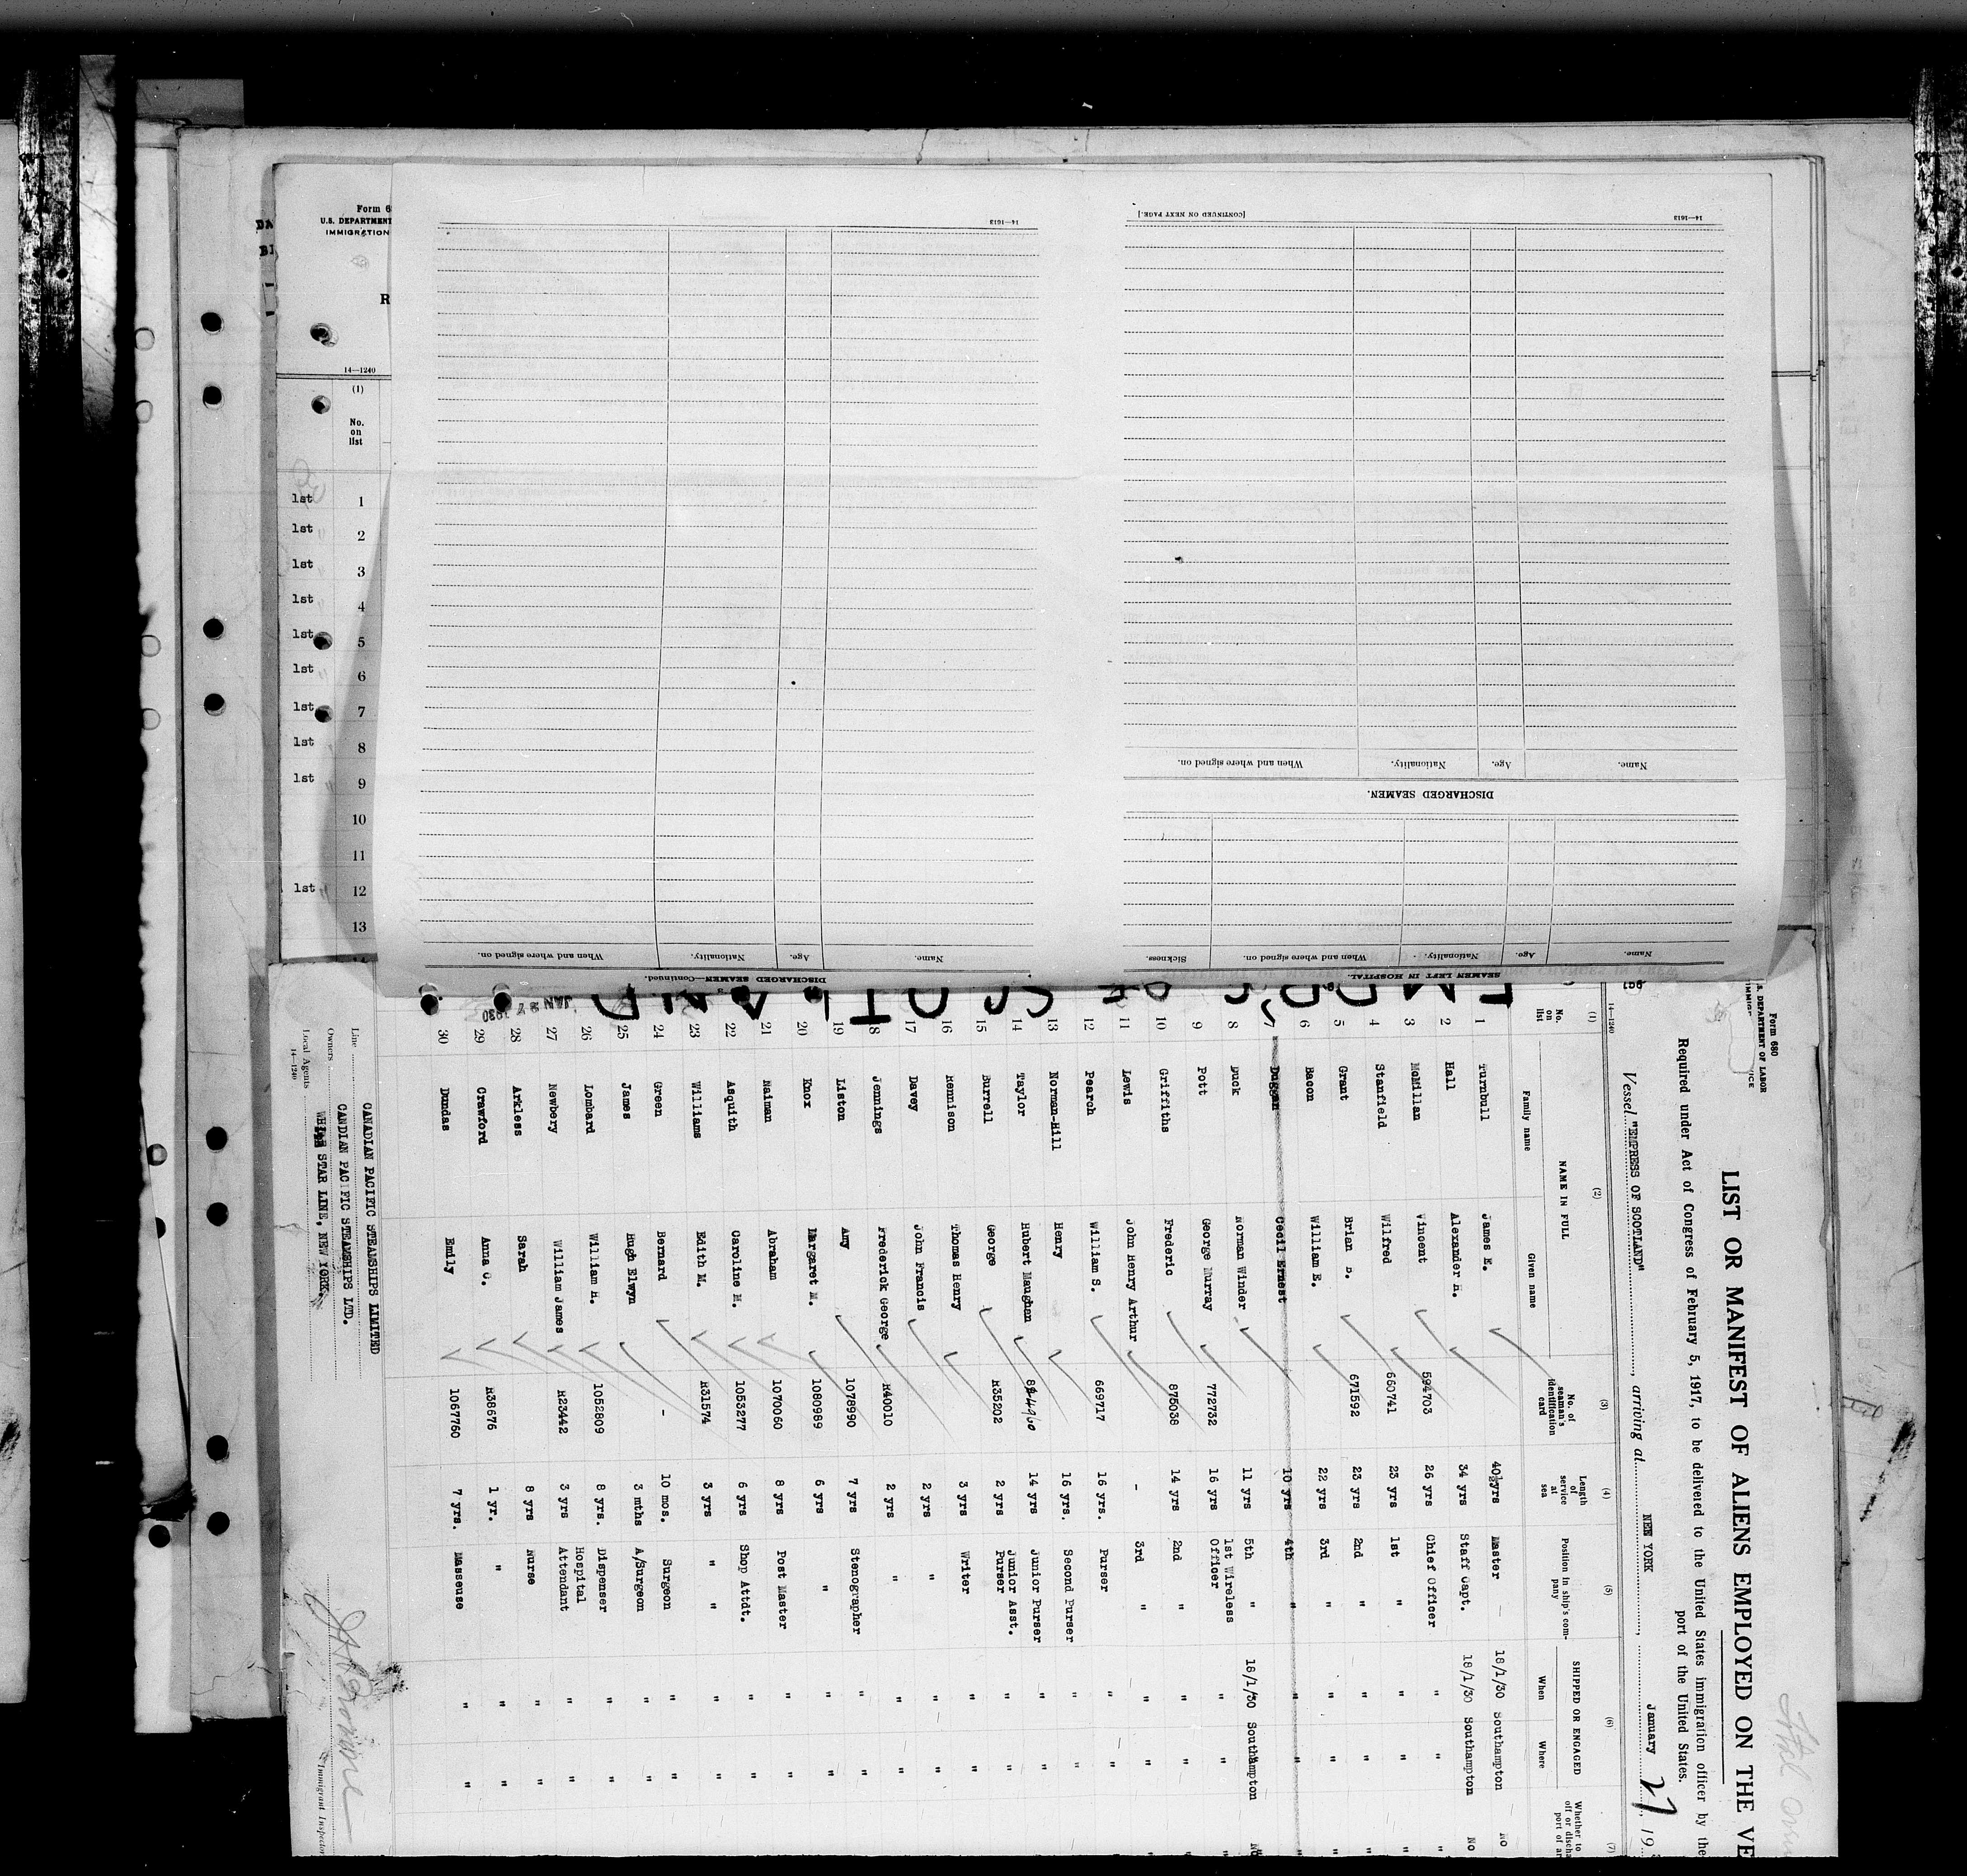 Form 6
U.S. DEPARTMENT
IMMIGRATION
R
14—1240
(1)
No.
on
list
1st 1
1st 2
1st 3
1st 4
1st 5
1st 6
1st 7
1st 8
1st 9
10
11
1st 12
13
14—1613
DISCHARGED SEAMEN—Continued.
Name. Age. Nationality. When and where signed on.
SEAMEN LEFT IN HOSPITAL.
Name. Age. Nationality. When and where signed on. Sickness.
DISCHARGED SEAMEN.
Name. Age. Nationality. When and where signed on.
14—1613
[CONTINUED ON NEXT PAGE.]
Form 680
S. DEPARTMENT OF LABOR
14—1240
LIST OR MANIFEST OF ALIENS EMPLOYED ON THE VE
Required under Act of Congress of February 5, 1917, to be delivered to the United States immigration officer by the
port of the United States.
Vessel "EMPRESS OF SCOTLAND", arriving at NEW YORK, January 27, 19
(1) (2) (3) (4) (5) (6) (7)
No. on list
NAME IN FULL
Family name Given name
No. of seaman's identification card
Length of service at sea
Position in ship's company
SHIPPED OR ENGAGED
When Where
Whether to
off or discha
port of ar
1 Turnbull James E. 40½yrs Master — 18/1/30 Southampton No
2 Hall Alexander H. 34 yrs Staff Capt. 18/1/30 Southampton No
3 McMillan Vincent 594703 26 yrs Chief Officer " " "
4 Stanfield Wilfred 660741 23 yrs 1st " " " "
5 Grant Brian B. 671592 23 yrs 2nd " " "
6 Bacon William E. 22 yrs 3rd " " "
7 Duggan Cecil Ernest 10 yrs 4th " " "
8 Duck Norman Winder 11 yrs 5th " 18/1/30 Southampton No
9 Pott George Murray 772732 16 yrs 1st Wireless Officer " " "
10 Griffiths Frederic 875038 14 yrs 2nd " " " "
11 Lewis John Henry Arthur - 3rd " " " "
12 Pearch William S. 669717 16 yrs. Purser " "
13 Norman-Hill Henry 16 yrs. Second Purser " "
14 Taylor Hubert Maughan 14 yrs Junior Purser " "
15 Burrell George R35202 2 yrs Junior Asst. Purser " "
16 Rennison Thomas Henry 3 yrs Writer " "
17 Davey John Francis 2 yrs " " "
18 Jennings Frederick George R40010 2 yrs " " "
19 Liston Amy 1078990 7 yrs Stenographer " "
20 Knox Margaret M. 1080989 6 yrs " " "
21 Naiman Abraham 1070060 8 yrs Post Master " "
22 Asquith Caroline M. 1053277 6 yrs Shop Attdt. " "
23 Williams Edith M. R31574 3 yrs " " " "
24 Green Bernard - 10 mos. Surgeon " "
25 James Hugh Elwyn 3 mths A/Surgeon " "
26 Lombard William H. 1052809 8 yrs. Dispenser " "
27 Newbery William James R23442 3 yrs Hospital Attendant " "
28 Arkless Sarah 8 yrs Nurse " "
29 Crawford Anna C. R38676 1 yr. " " "
30 Dundas Emily 1067760 7 yrs. Masseuse " "
JAN 27 1930
Line CANADIAN PACIFIC STEAMSHIPS LIMITED
Owners CANDIAN PACIFIC STEAMSHIPS LTD.
Local Agents WHITE STAR LINE, NEW YORK.
14—1240
Immigrant Inspector